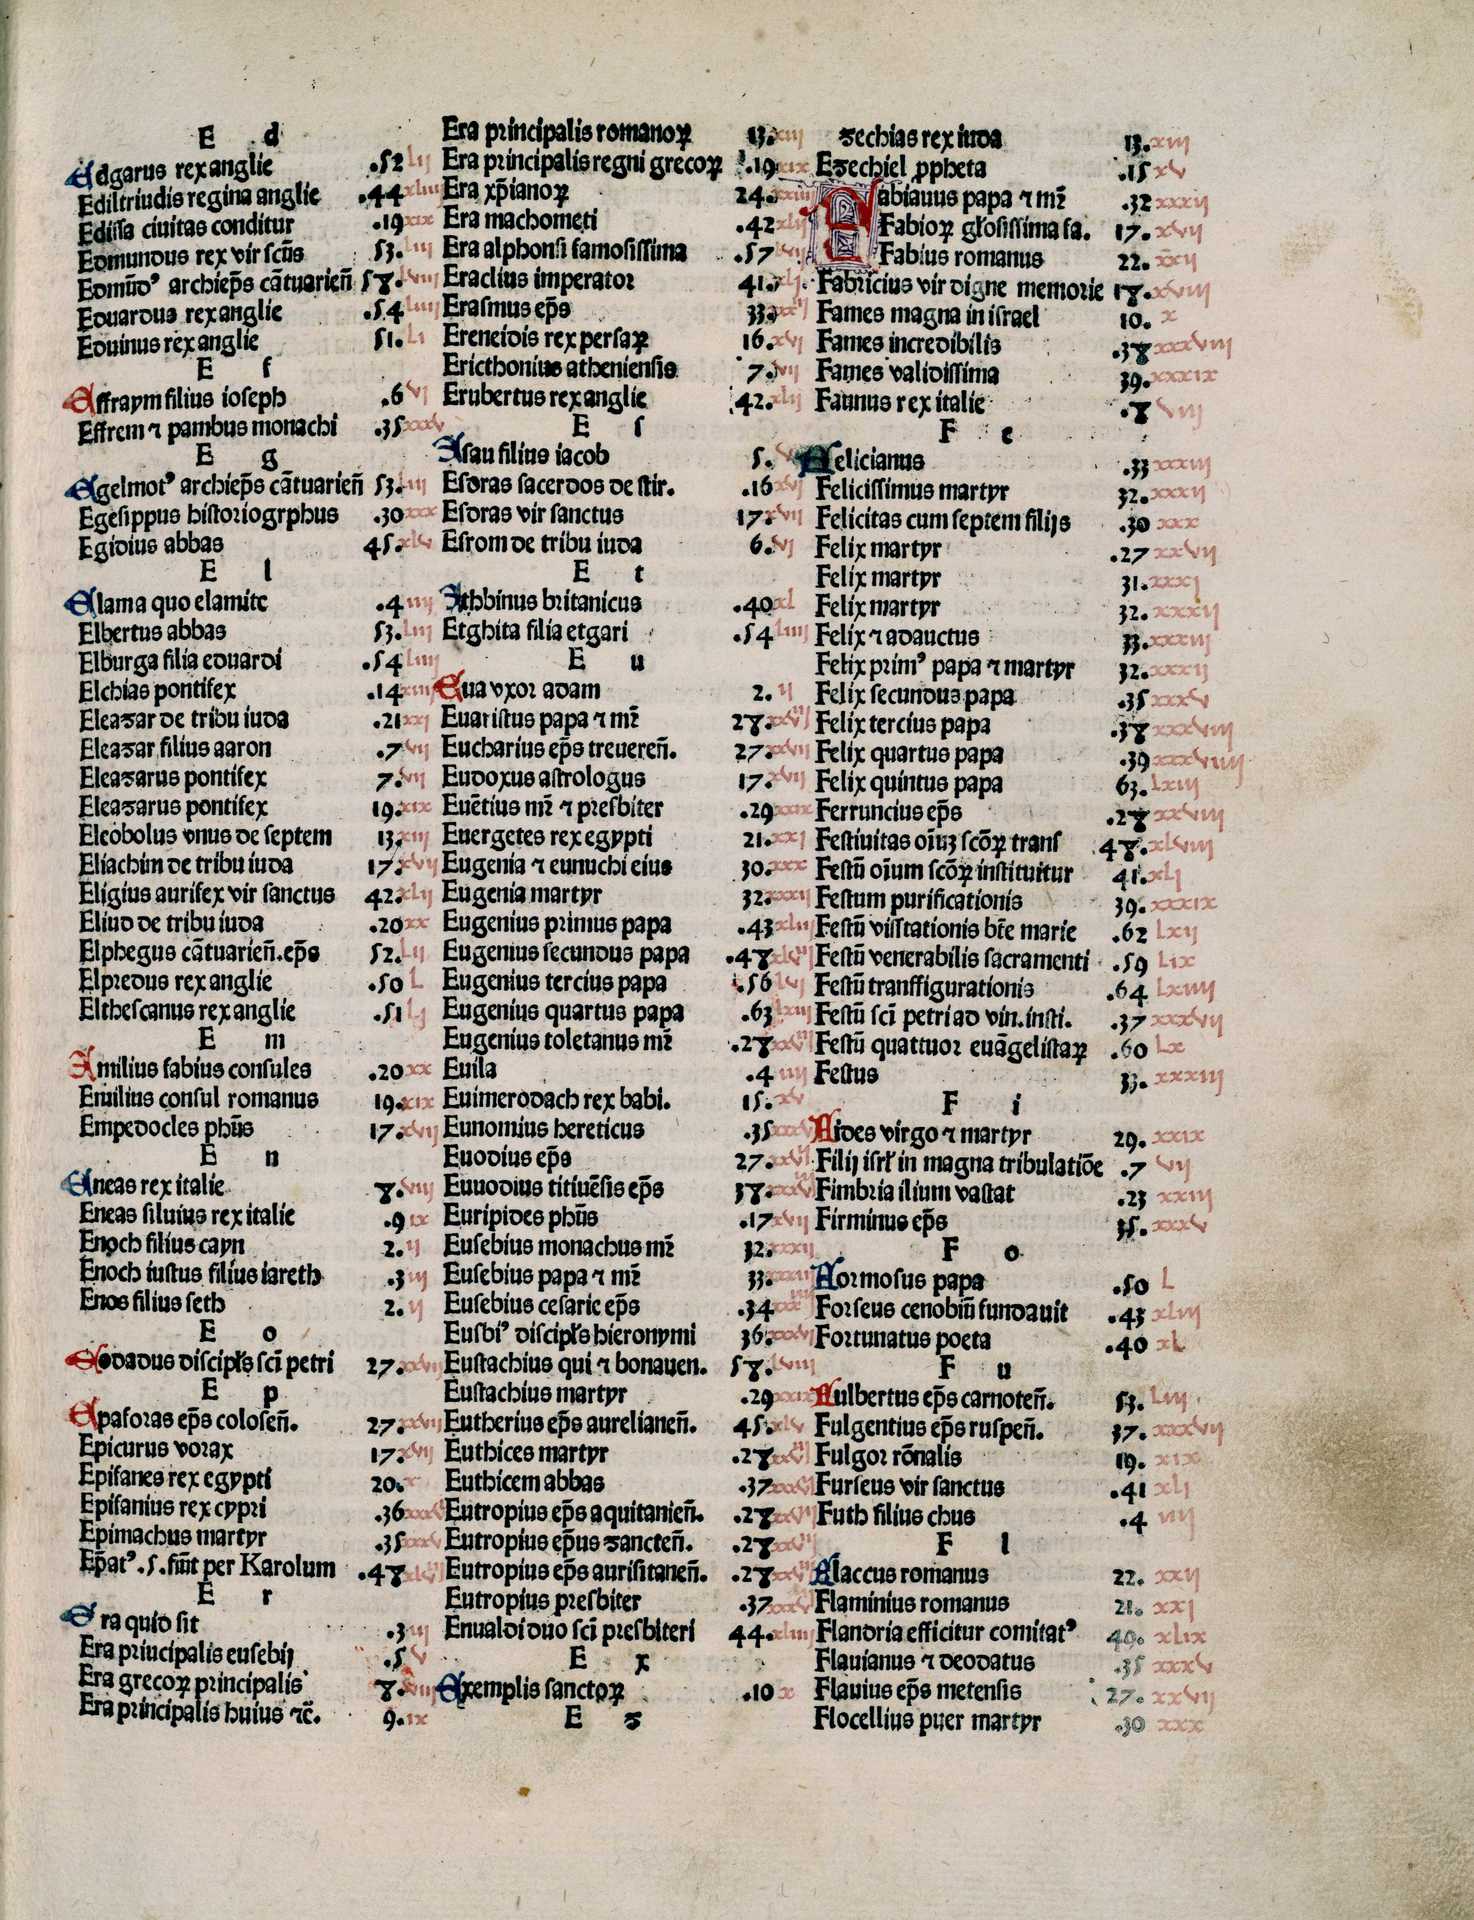 E d
Edgarus rex anglie .52 lii
Ediltrudis regina anglie .44 xliiii
Edissa ciuitas conditur .19 xix
Edmundus rex vir scūs 53. liii
Edmūdꝰ archiep̄s cātuarieñ 58. lviii
Eduardus rex anglie .54 liiii
Eduinus rex anglie 51. li
E f
Effraym filius ioseph .6 vi
Effrem ⁊ pambus monachi .35 xxxv
E g
Egelmotꝰ archiep̄s cātuarieñ 53. liii
Egesippus historiogrphus .30 xxx
Egidius abbas 45. xlv
E l
Elama quo elamite .4 iiii
Elbertus abbas 53. liii
Elburga filia eduardi .54 liiii
Elchias pontifex .14 xiiii
Eleazar de tribu iuda .21 xxi
Eleazar filius aaron .7 vii
Eleazarus pontifex 7. vii
Eleazarus pontifex 19. xix
Eleobolus vnus de septem 13. xiii
Eliachim de tribu iuda 17. xvii
Eligius aurifex vir sanctus 42. xlii
Eliud de tribu iuda .20 xx
Elphegus cātuarieñ. ep̄s 52. lii
Elpredus rex anglie .50 L
Elthescanus rex anglie .51 Li
E m
Emilius fabius consules .20 xx
Emilius consul romanus 19. xix
Empedocles phūs 17. xvii
E n
Eneas rex italie 8. viii
Eneas siluius rex italie .9 ix
Enoch filius cayn 2. ii
Enoch iustus filius iareth .3 iii
Enos filius seth 2. ii
E o
Eodadus discipl̄s sci̅ petri 27. xxvii
E p
Epafras ep̄s coloseñ. 27. xxvii
Epicurus vorax 17. xvii
Epifanes rex egypti 20. x
Epifanius rex cypri .36 xxxvi
Epimachus martyr .35 xxxv
Ep̄atꝰ .5. fiūt per Karolum .48 xlviii
E r
Era quid sit .3 iii
Era principalis eusebij .5 v
Era grecoꝝ principalis 8. viii
Era principalis huius ⁊c̄. 9. ix
Era principalis romanoꝝ 13. xiii
Era principalis regni grecoꝝ .19 xix
Era xp̄ianoꝝ 24. xxiiii
Era machometi .42 xlii
Era alphonsi famosissima .57 lvii
Eraclius imperator 41. xli
Erasmus ep̄s 33. xxxiii
Ereneidis rex persaꝝ 16. xvi
Ericthonius atheniensis 7. vii
Erubertus rex anglie 42. xlii
E s
Esau filius iacob 5. v
Esdras sacerdos de stir. .16 xvi
Esdras vir sanctus 17. xvii
Esrom de tribu iuda 6. vi
E t
Ethbinus britanicus .40 xl
Etghita filia etgari .54 liiii
E u
Eua vxor adam 2. ii
Euaristus papa ⁊ mr̄ 28. xxviii
Eucharius ep̄s treuereñ. 27. xxvii
Eudoxus astrologus 17. xvii
Euētius mr̄ ⁊ presbiter .29 xxix
Euergetes rex egypti 21. xxi
Eugenia ⁊ eunuchi eius 30. xxx
Eugenia martyr 32. xxxii
Eugenius primus papa .43 xliii
Eugenius secundus papa .48 xlviii
Eugenius tercius papa .56 lvi
Eugenius quartus papa .63 lxiii
Eugenius toletanus mr̄ .28 xxviii
Euila .4 iiii
Euimerodach rex babi. 15. xv
Eunomius hereticus .35 xxxv
Euodius ep̄s 27. xxvii
Euuodius titiuēsis ep̄s 38. xxxviii
Euripides phūs .17 xvii
Eusebius monachus mr̄ 32. xxxii
Eusebius papa ⁊ mr̄ 33. xxxiii
Eusebius cesarie ep̄s .34 xxxiiii
Eusbiꝰ discipl̄s hieronymi 36. xxxvi
Eustachius qui ⁊ bonauen. 58. lviii
Eustachius martyr .29 xxix
Eutherius ep̄s aurelianeñ. 45. xlv
Euthices martyr .28 xxviii
Euthicem abbas .37 xxxvii
Eutropius ep̄s aquitanieñ. .28 xxviii
Eutropius ep̄us zancteñ. .28 xxviii
Eutropius ep̄s aurisitaneñ. .28 xxviii
Eutropius presbiter .37 xxxvii
Enualdi duo sci̅ presbiteri 44. xliiii
E x
Exemplis sanctoꝝ .10 x
E z
Ezechias rex iuda 13. xiii
Ezechiel ꝓpheta .15 xv
Fabianus papa ⁊ mr̄ .32 xxxii
Fabioꝝ gl̄osissima fa. 17. xvii
Fabius romanus 22. xxii
Fabricius vir digne memorie 18. xviii
Fames magna in israel 10. x
Fames incredibilis .38 xxxviii
Fames validissima 39. xxxix
Faunus rex italie .8 viii
F e
Felicianus .33 xxxiii
Felicissimus martyr 32. xxxii
Felicitas cum septem filijs .30 xxx
Felix martyr .27 xxvii
Felix martyr 31. xxxi
Felix martyr 32. xxxii
Felix ⁊ adauctus 33. xxxiii
Felix primꝰ papa ⁊ martyr 32. xxxii
Felix secundus papa .35 xxxv
Felix tercius papa .38 xxxviii
Felix quartus papa .39 xxxviiii
Felix quintus papa 63. lxiii
Ferruncius ep̄s .28 xxviii
Festiuitas oīuꝫ scōꝝ trans 48. xlviii
Festū oīum scōꝝ instituitur 41. xli
Festum purificationis 39. xxxix
Festū visitationis bt̄e marie .62 lxii
Festū venerabilis sacramenti .59 lix
Festū transfigurationis .64 lxiiii
Festū sci̅ petri ad vin. insti. .37 xxxvii
Festū quattuor euāgelistaꝝ .60 lx
Festus 33. xxxiii
F i
Fides virgo ⁊ martyr 29. xxix
Filij isrl̄ in magna tribulatiōe .7 vii
Fimbria ilium vastat .23 xxiii
Firminus ep̄s 35. xxxv
F o
Formosus papa .50 L
Forseus cenobiū fundauit .43 xliii
Fortunatus poeta .40 xl
F u
Fulbertus ep̄s carnoteñ. 53. liii
Fulgentius ep̄s ruspeñ. 37. xxxvii
Fulgor rōnalis 19. xix
Furseus vir sanctus .41 xli
Futh filius chus .4 iiii
F l
Flaccus romanus 22. xxii
Flaminius romanus 21. xxi
Flandria efficitur comitatꝰ 49. xlix
Flauianus ⁊ deodatus .35 xxxv
Flauius ep̄s metensis 27. xxvii
Flocellius puer martyr .30 xxx